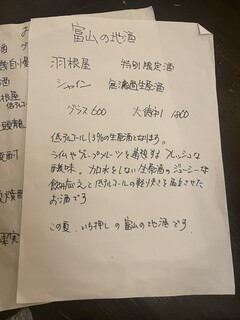 富山の地酒
羽根屋 特別限定酒
シャイン 無濾過生原酒
グラス 600 大徳利 1800
低アルコール13%の生原酒となります。
ライムやグレープフルーツを着想する フレッシュな
酸味。加水をしない生原酒のジューシーな
飲み応えと低アルコールの軽り快さを両立させた
お酒です
この夏、いち押しの富山の地酒です